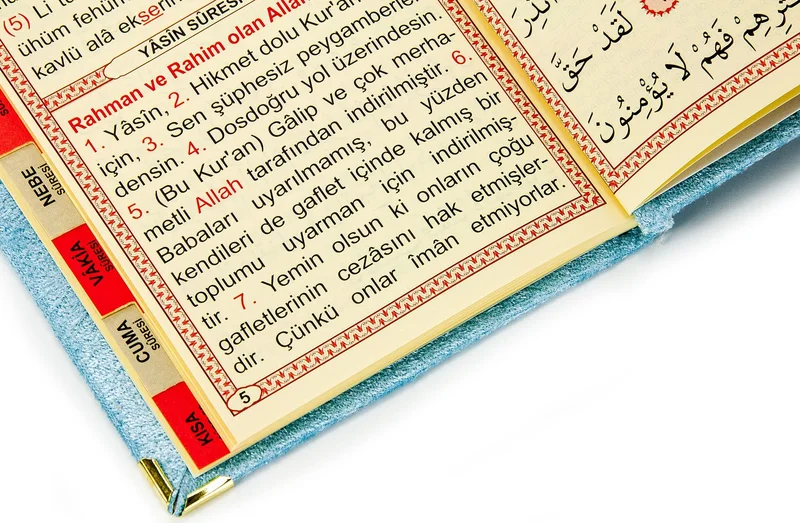 (5) Li
ühüm fehüm
kavlü alâ ekse
YÂSÎN SÛRESİ
Rahman ve Rahim olan Allah
1. Yâsîn, 2. Hikmet dolu Kur'an
için, 3. Sen şüphesiz peygamberler
densin. 4. Dosdoğru yol üzerindesin.
5. (Bu Kur'an) Gâlip ve çok merha-
metli Allah tarafından indirilmiştir. 6.
Babaları uyarılmamış, bu yüzden
kendileri de gaflet içinde kalmış bir
toplumu uyarman için indirilmiş-
tir. 7. Yemin olsun ki onların çoğu
gafletlerinin cezâsını hak etmişler-
dir. Çünkü onlar îmân etmiyorlar.
5
NEBE
SÛRESİ
VÂKIA
SÛRESİ
CUMA
SÛRESİ
KISA
لَقَدْ حَقَّ
فَهُمْ لَا يُؤْمِنُونَ